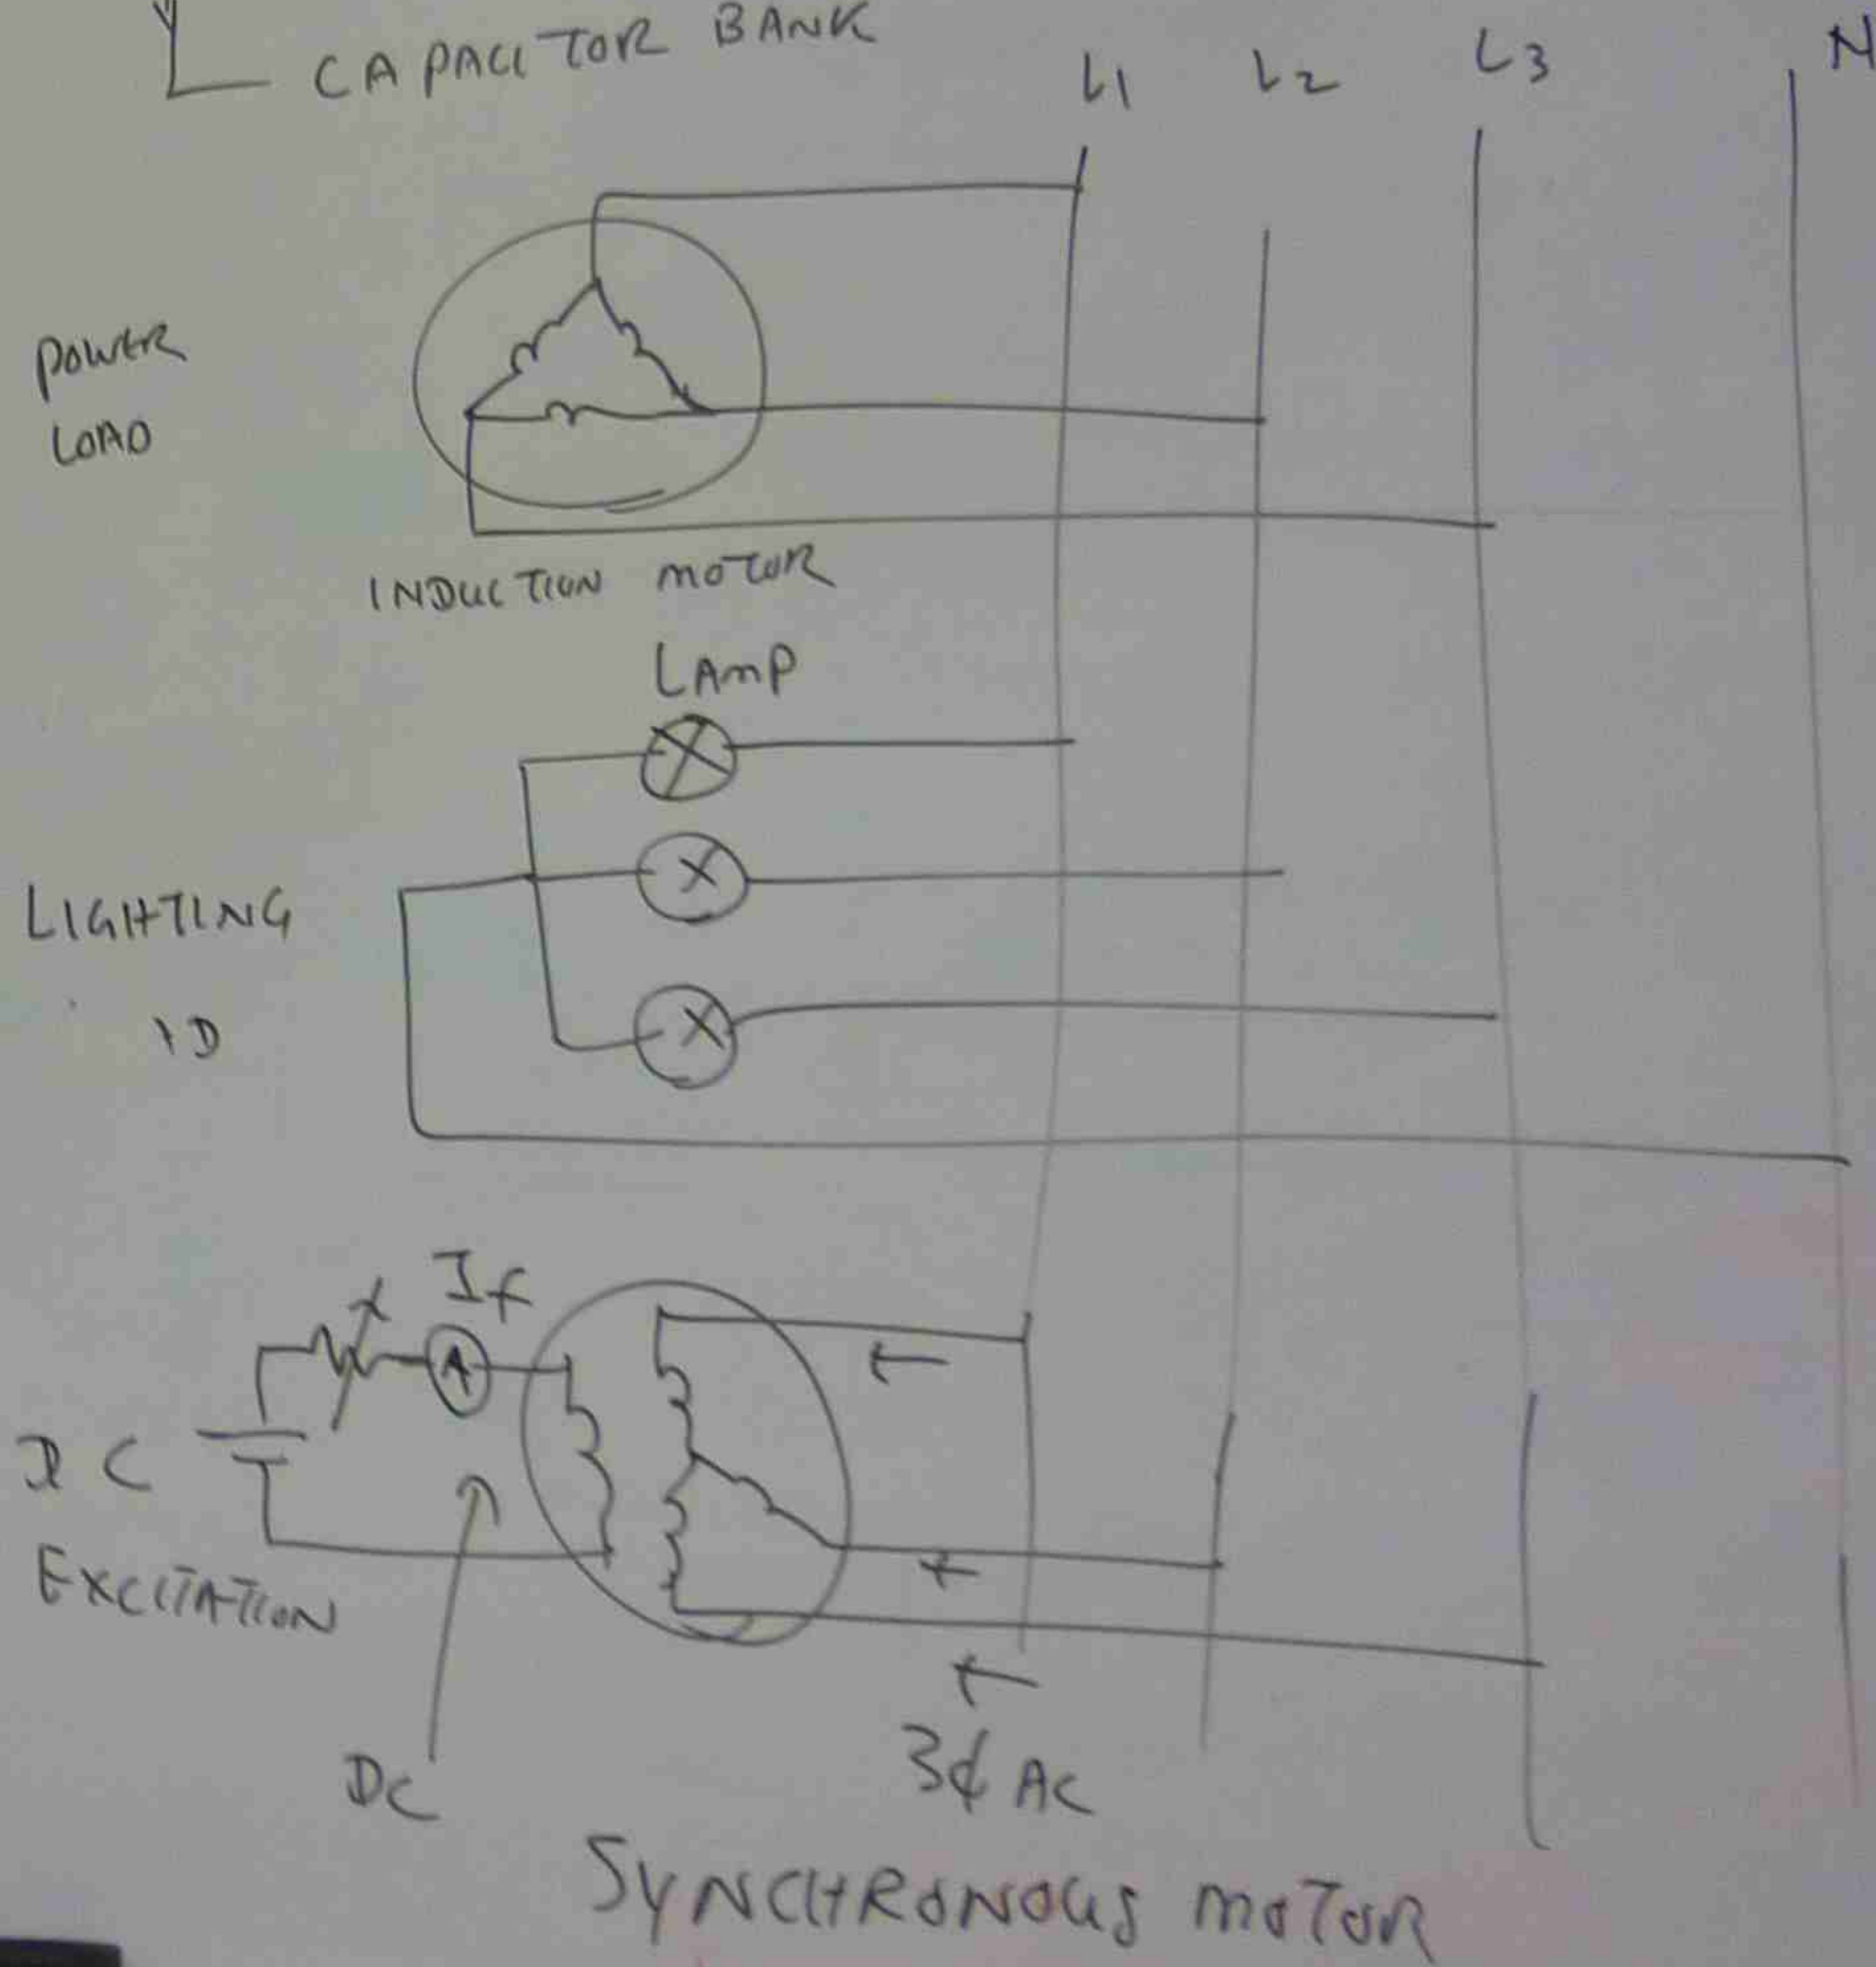 CAPACITOR BANK
L1 L2 L3 N
POWER
LOAD
INDUCTION MOTOR
LAMP
LIGHTING
1D
If
A
DC
EXCITATION
DC
3¢ AC
SYNCHRONOUS MOTOR